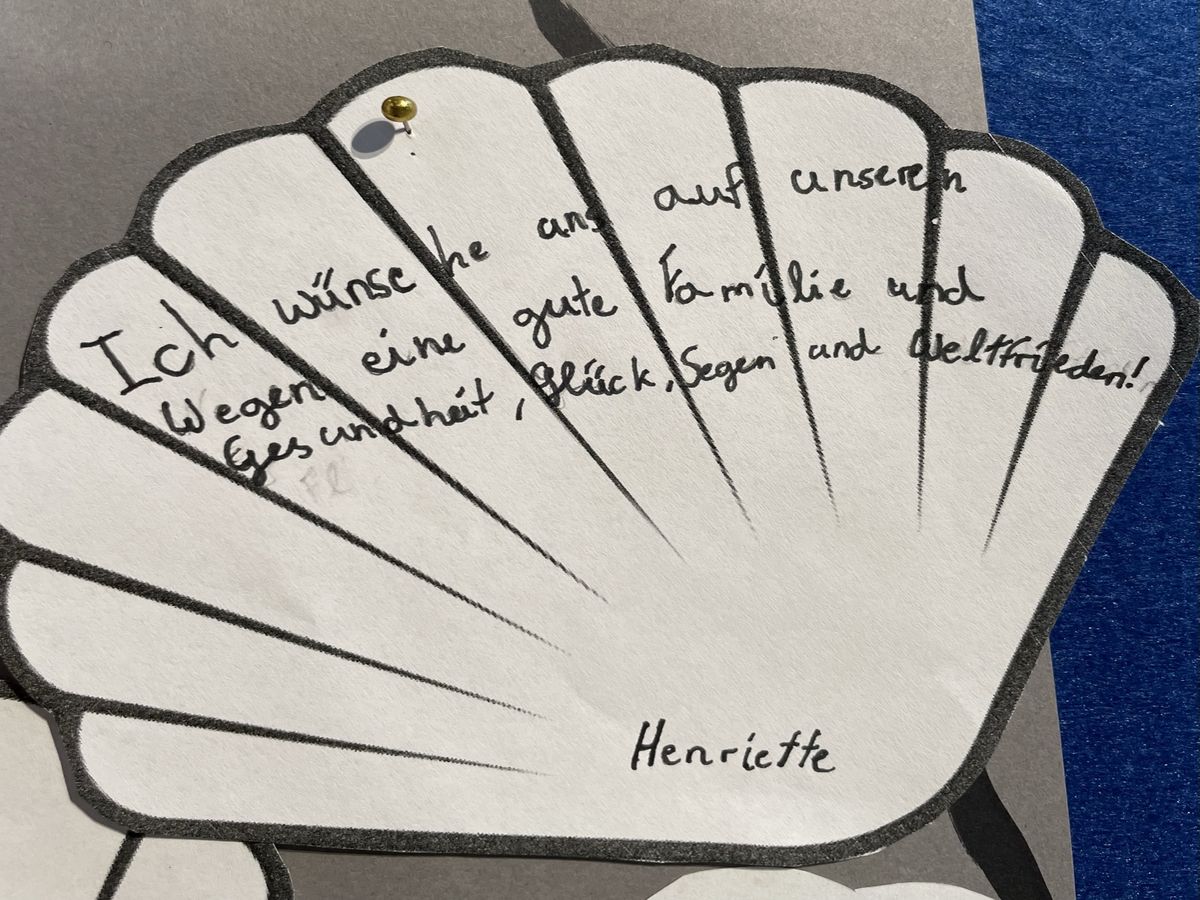 Ich wünsche uns auf unseren
Wegen eine gute Familie und
Gesundheit, Glück, Segen und Weltfrieden!
Henriette